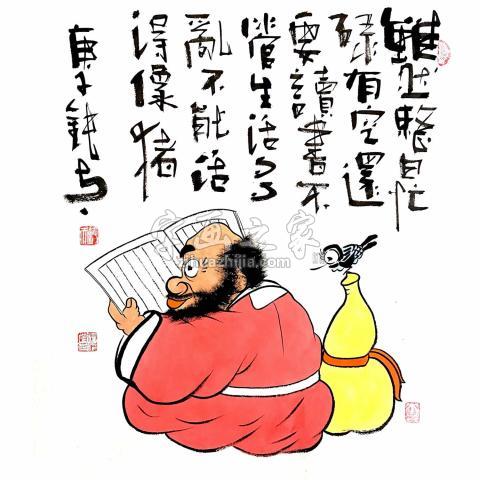 雖然整日忙
碌有空還
要讀書不
管生活多
亂不能活
得像猪
庚子
字画之家
zihuazhijia.com